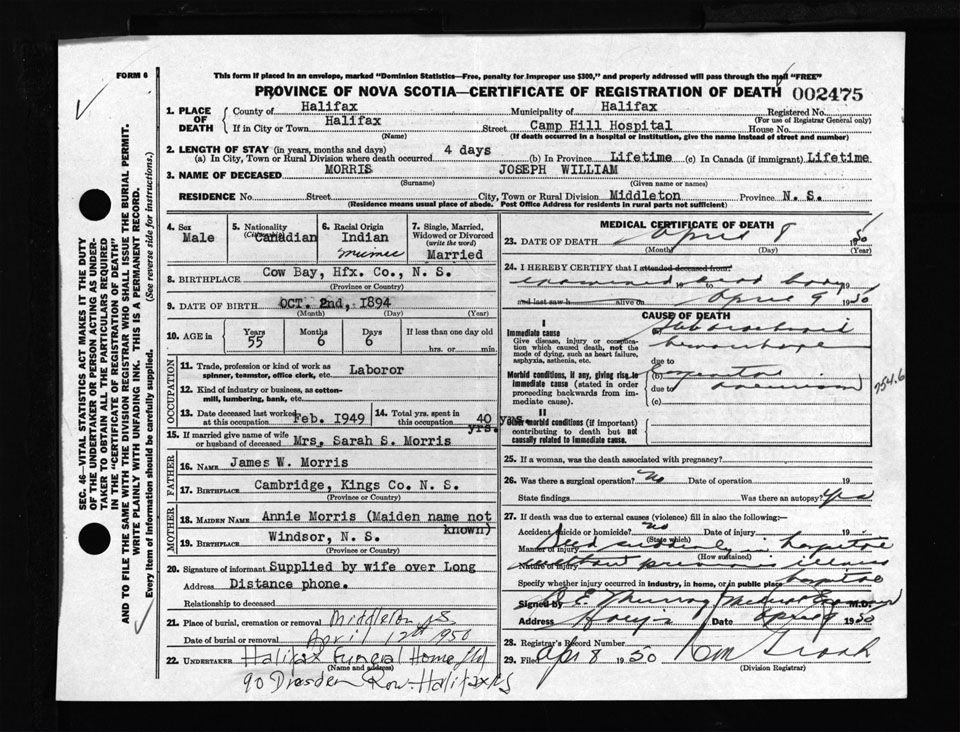 FORM 6
This form if placed in an envelope, marked "Dominion Statistics—Free, penalty for improper use $300," and properly addressed will pass through the mail "FREE"
PROVINCE OF NOVA SCOTIA—CERTIFICATE OF REGISTRATION OF DEATH 002475
1. PLACE OF DEATH
County of Halifax Municipality of Halifax Registered No.
(For use of Registrar General only)
If in City or Town Halifax Street Camp Hill Hospital House No.
(Name) (If death occurred in a hospital or institution, give the name instead of street and number)
2. LENGTH OF STAY (in years, months and days)
(a) In City, Town or Rural Division where death occurred 4 days (b) In Province Lifetime (c) In Canada (if immigrant) Lifetime
3. NAME OF DECEASED MORRIS JOSEPH WILLIAM
(Surname) (Given name or names)
RESIDENCE No. Street City, Town or Rural Division Middleton Province N. S.
(Residence means usual place of abode. Post Office Address for residents in rural parts not sufficient)
4. Sex Male
5. Nationality (Citizenship) Canadian
6. Racial Origin Indian
7. Single, Married, Widowed or Divorced (write the word) Married
8. BIRTHPLACE Cow Bay, Hfx. Co., N. S.
(Province or Country)
9. DATE OF BIRTH OCT. 2nd, 1894
(Month) (Day) (Year)
10. AGE in Years 55 Months 6 Days 6 If less than one day old
hrs. or min.
OCCUPATION
11. Trade, profession or kind of work as spinner, teamster, office clerk, etc. Laboror
12. Kind of industry or business, as cotton-mill, lumbering, bank, etc.
13. Date deceased last worked at this occupation Feb. 1949
14. Total yrs. spent in this occupation 40 yrs.
yrs.
15. If married give name of wife or husband of deceased Mrs, Sarah S. Morris
FATHER
16. NAME James W. Morris
17. BIRTHPLACE Cambridge, Kings Co. N. S.
(Province or Country)
MOTHER
18. MAIDEN NAME Annie Morris (Maiden name not known)
19. BIRTHPLACE Windsor, N. S.
(Province or Country)
20. Signature of informant Supplied by wife over Long
Address Distance phone.
Relationship to deceased
21. Place of burial, cremation or removal Middleton NS
Date of burial or removal April 12th 1950
22. UNDERTAKER Halifax Funeral Home Ltd
(Name and address)
90 Dresden Row Halifax NS
MEDICAL CERTIFICATE OF DEATH
23. DATE OF DEATH April 8 1950
(Month) (Day) (Year)
24. I HEREBY CERTIFY that I attended deceased from:
examined dead body 19 to 19
and last saw h alive on April 9 1950
CAUSE OF DEATH
I
Immediate cause
Give disease, injury or complication which caused death, not the mode of dying, such as heart failure, asphyxia, asthenia, etc.
(a) Subarachnoid
hemorrhage
due to
Morbid conditions, if any, giving rise to immediate cause (stated in order proceeding backwards from immediate cause).
(b)
due to
(c)
754.6
II
Other morbid conditions (if important) contributing to death but not causally related to immediate cause.
25. If a woman, was the death associated with pregnancy?
26. Was there a surgical operation? No Date of operation 19
State findings Was there an autopsy? Yes
27. If death was due to external causes (violence) fill in also the following:
Accident, suicide or homicide? No Date of injury 19
(State which)
Manner of injury Died suddenly in hospital
(How sustained)
Nature of injury without previous illness
Specify whether injury occurred in industry, in home, or in public place hospital
Signed by E. Murray Medical Examiner M.D.
Address Halifax Date April 9 1950
28. Registrar's Record Number
29. Filed Apr 8 1950
(Division Registrar)
SEC. 46—VITAL STATISTICS ACT MAKES IT THE DUTY
OF THE UNDERTAKER OR PERSON ACTING AS UNDER-
TAKER TO OBTAIN ALL THE PARTICULARS REQUIRED
IN THE "CERTIFICATE OF REGISTRATION OF DEATH"
AND TO FILE THE SAME WITH THE DIVISION REGISTRAR WHO SHALL ISSUE THE BURIAL PERMIT.
WRITE PLAINLY WITH UNFADING INK. THIS IS A PERMANENT RECORD.
Every item of information should be carefully supplied. (See reverse side for instructions.)